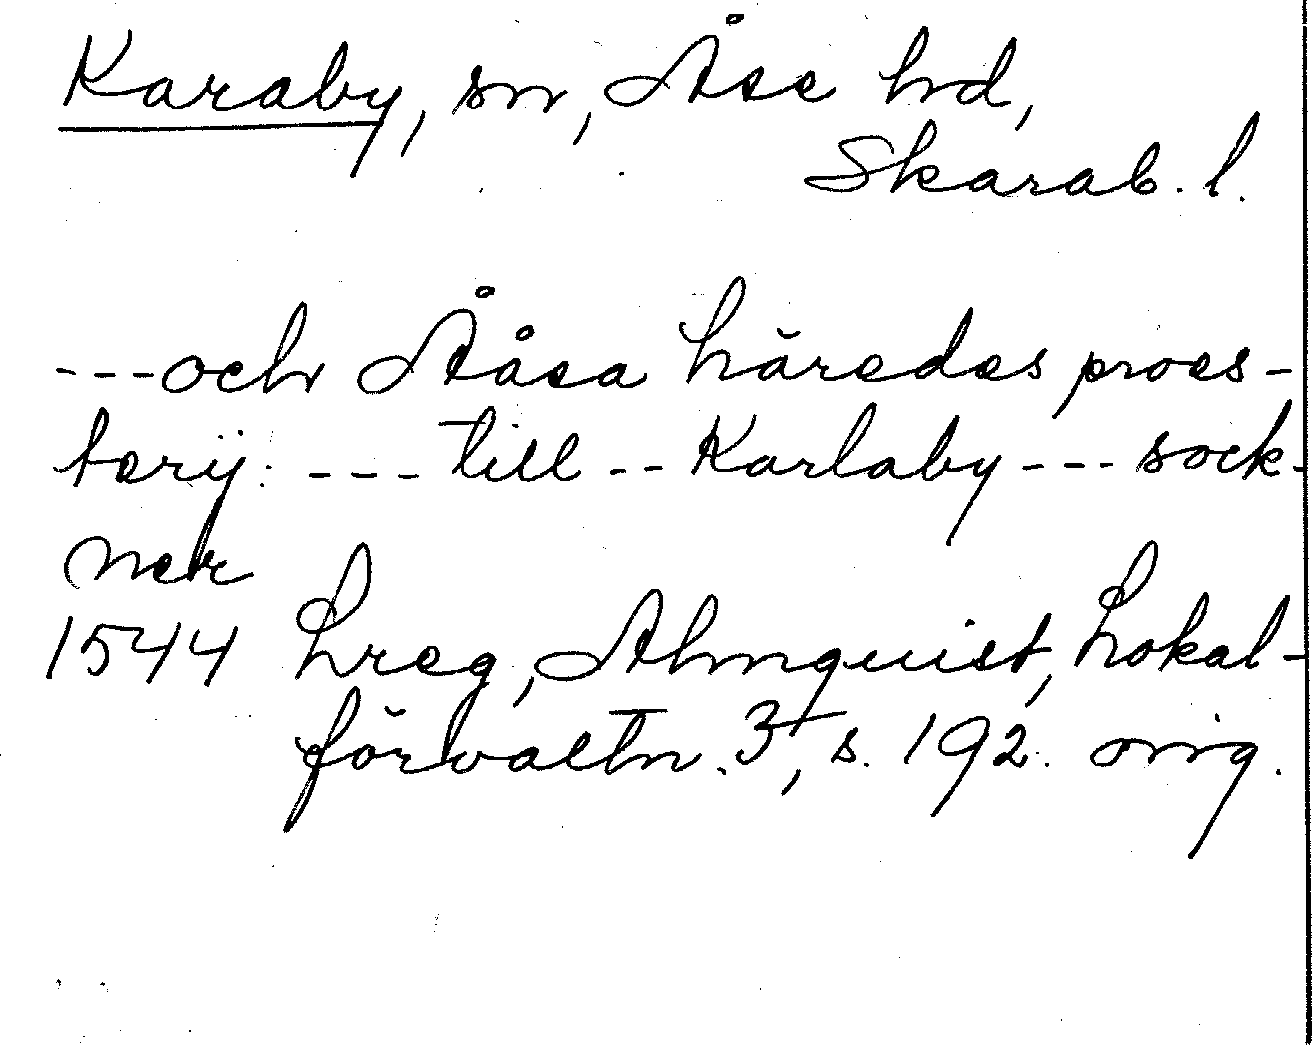 Karaby, sn, Åse hd,
Skarab. l.
---och Ååsa häredes proes-
terij: --- till -- Karlaby --- sock-
ner
1544 Lreg, Almquist, Lokal-
förvaltn. 3, s. 192. orig.